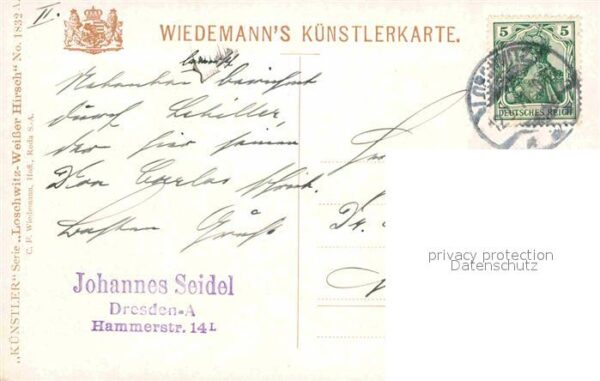 II.
WIEDEMANN'S KÜNSTLERKARTE.
5 5
DEUTSCHES REICH
LOSCHWITZ
berühmt
durch Schiller,
der hier seinen
Don Carlos schrieb.
Besten Gruß
Johannes Seidel
Dresden-A
Hammerstr. 14 I.
privacy protection
Datenschutz
„KÜNSTLER" Serie „Loschwitz-Weißer Hirsch" No. 1832 A.
C. F. Wiedemann, Hofl., Roda S.-A.